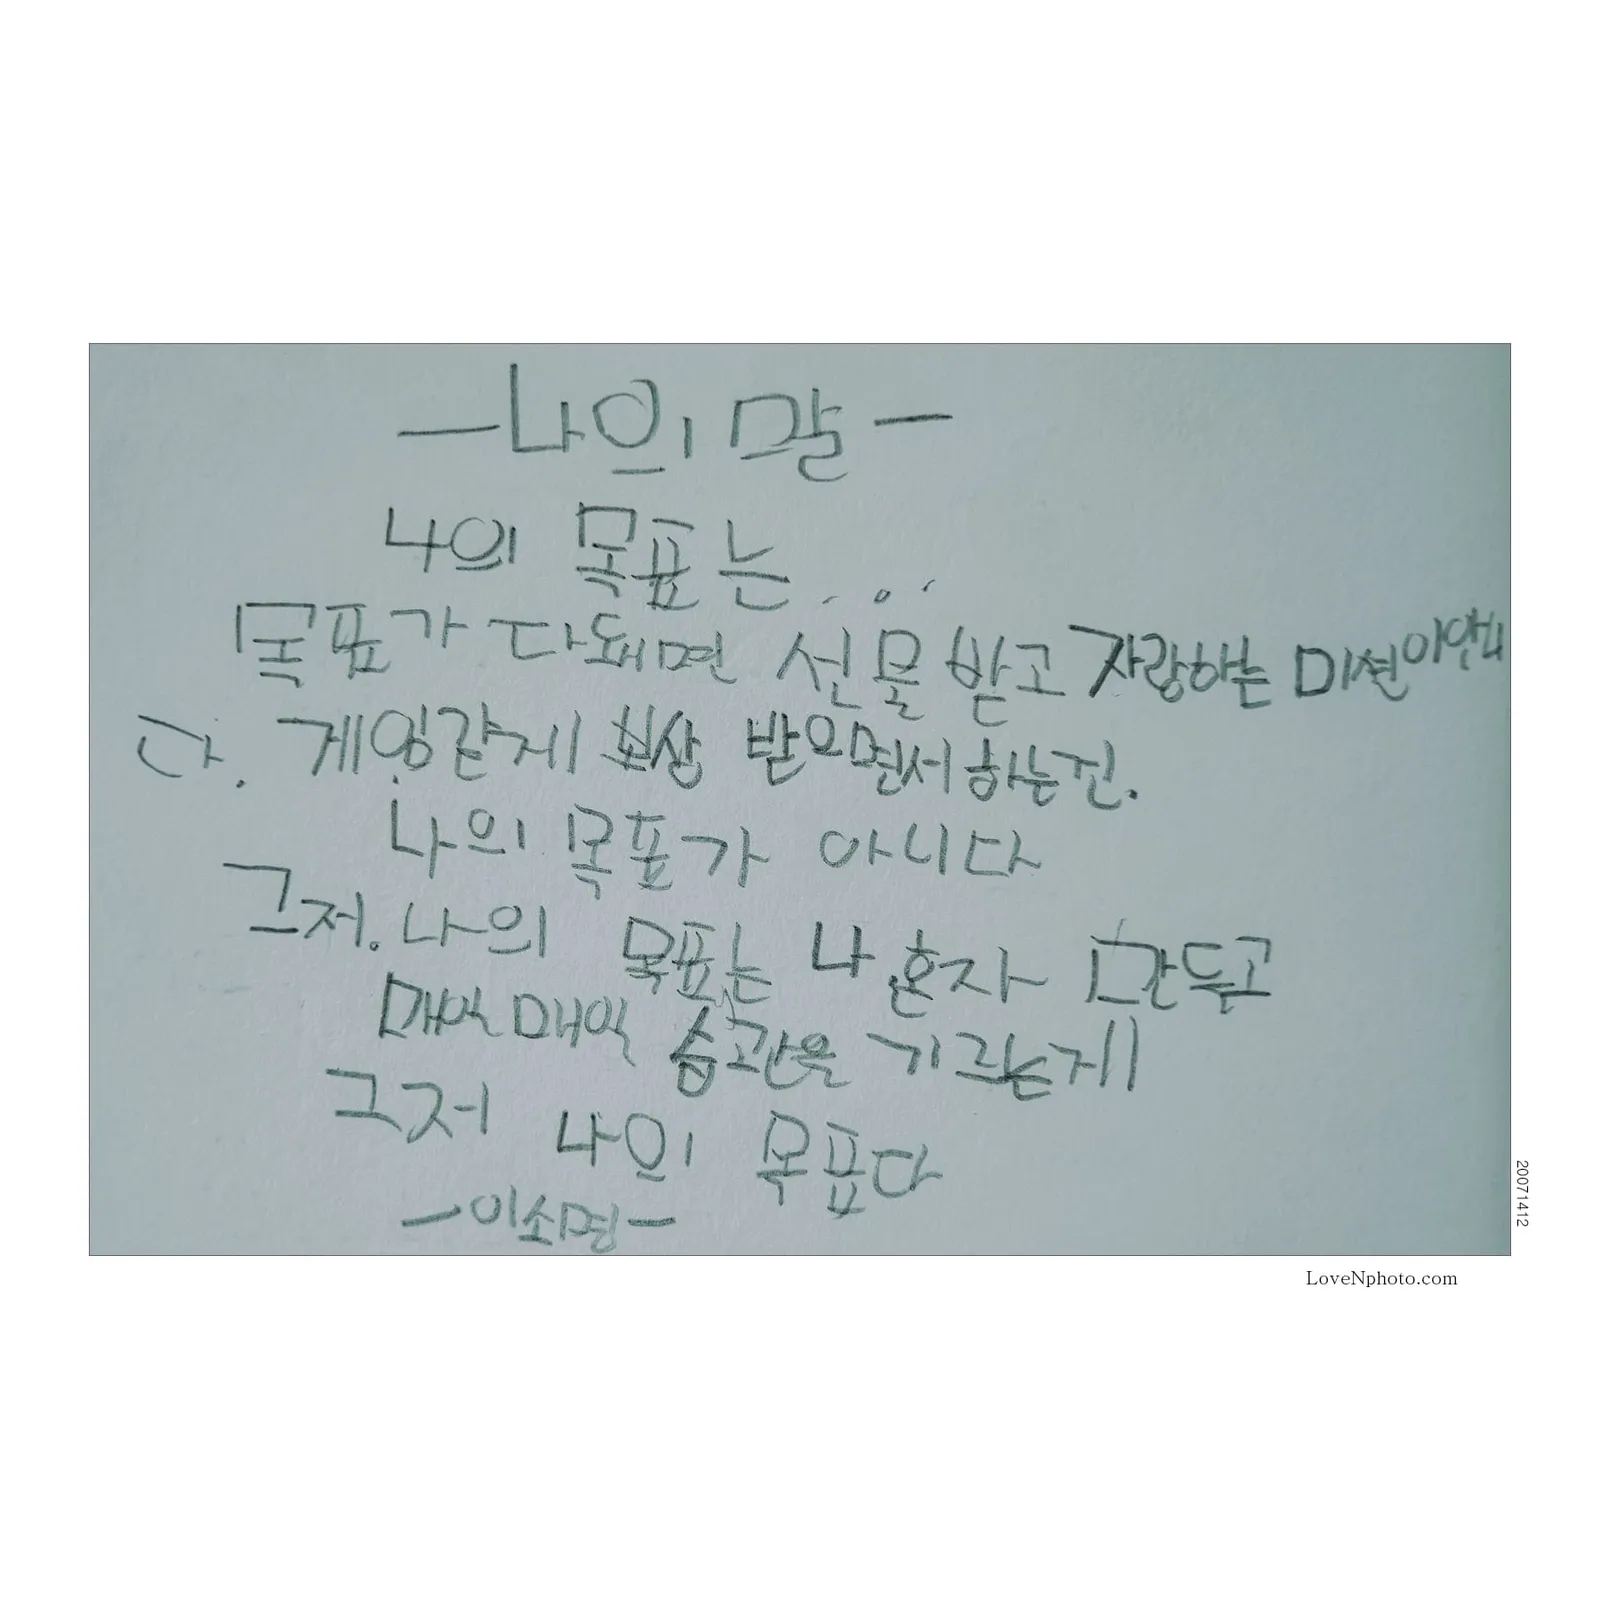 -나의 말-
나의 목표는...
목표가 다돼면 선물 받고 자랑하는 미션이안니
다. 게임같게 보상 받으면서하는건.
나의 목표가 아니다
그저. 나의 목표는 나 혼자 간듣고
매익매익 습관은 기르는게
그저 나의 목표다
-이쇠면-
20071412
LoveNphoto.com